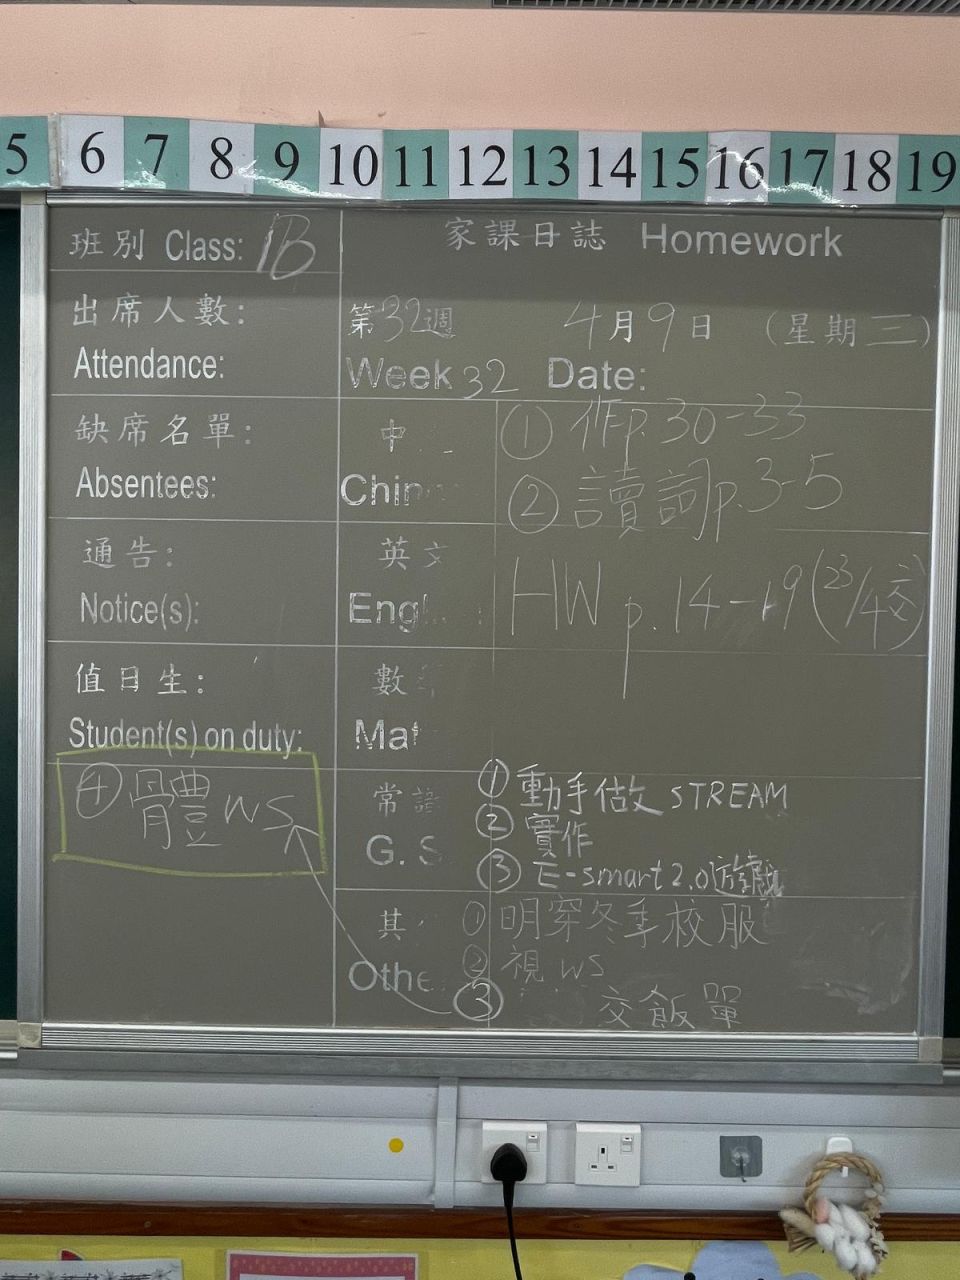 5 6 7 8 9 10 11 12 13 14 15 16 17 18 19
班別 Class: 1B
家課日誌 Homework
出席人數:
Attendance:
第32週 4月9日 (星期三)
Week 32 Date:
缺席名單:
Absentees:
中
Chin
① 作p. 30-33
② 讀詞p.3-5
通告:
Notice(s):
英文
Eng
HW p. 14-19 (23/4交)
值日生:
Student(s) on duty:
數
Mat
④ 體 WS
常
G. S
① 動手做 STREAM
② 實作
③ E-smart 2.0遊戲
其
Othe
① 明穿冬季校服
② 視 WS
③ 交飯單